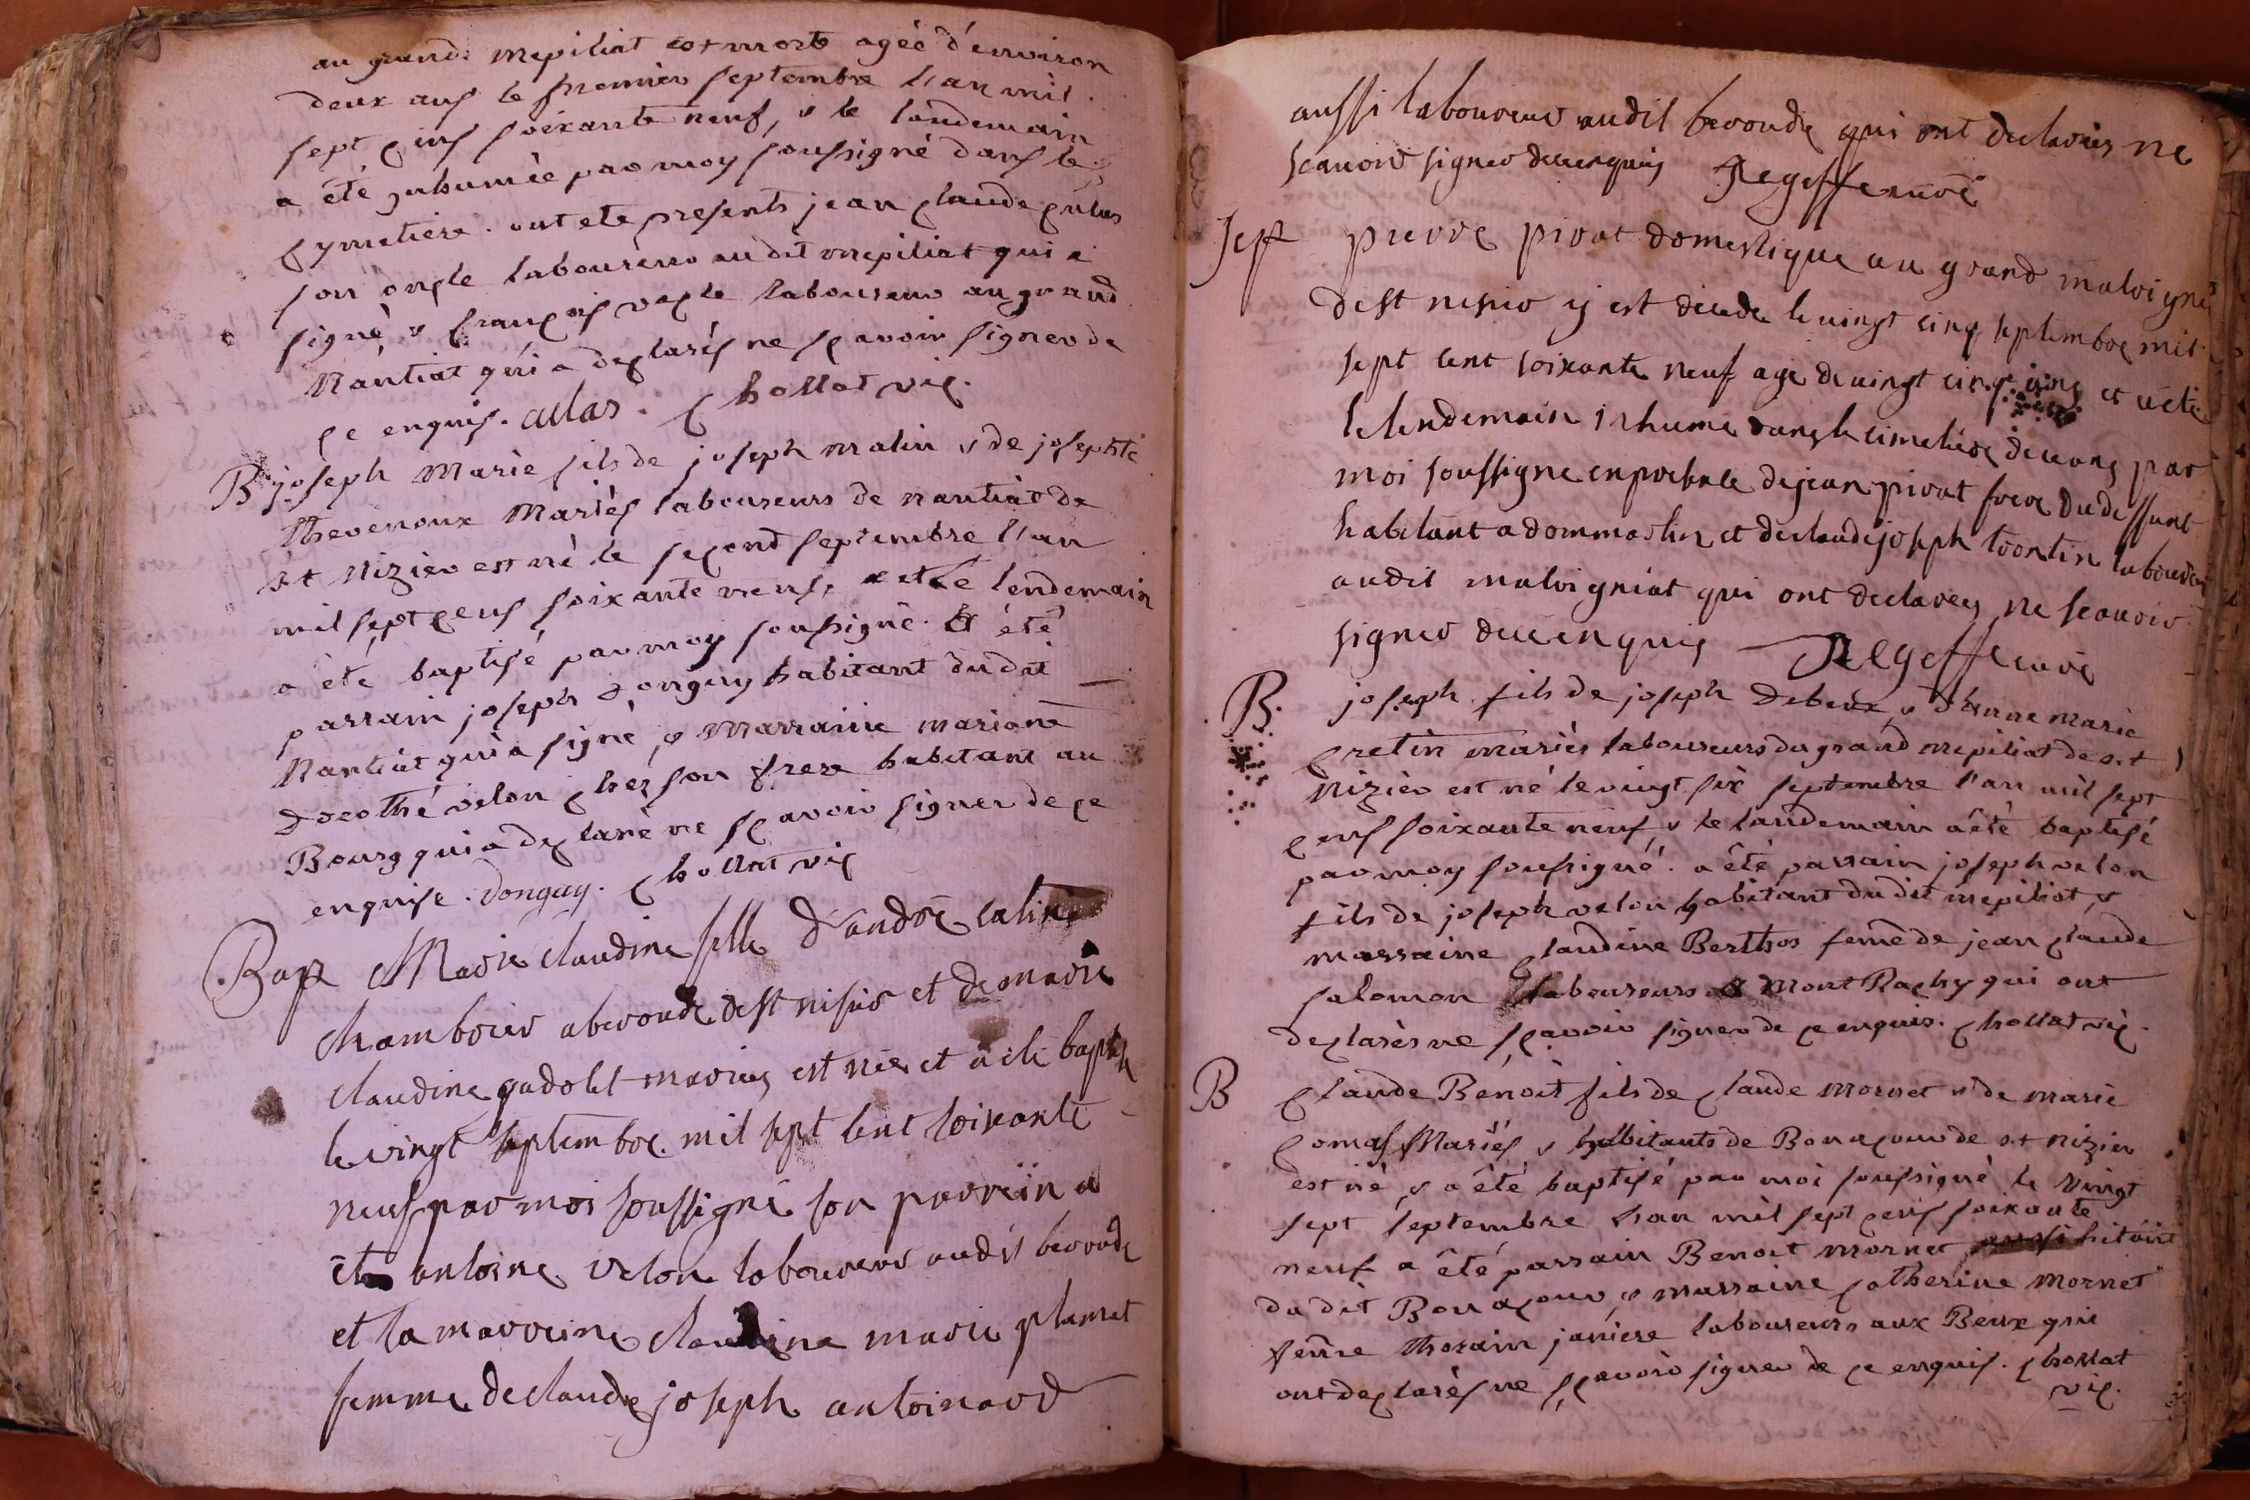 au grand mepiliat est morte agéé d'environ
deux ans le premier septembre l'an mil
sept cens soixante neuf, & le landemain
a été inhumée par moy soussigné dans le
cymetiere. ont eté presents jean claude
son oncle laboureur au dit mepiliat qui a
signé & françois vacle laboureur au grand
Nantiat qui a declarés ne sçavoir signer de
ce enquis. chollat vic.
B joseph Marie fils de joseph malin & de josephte
thevenoux Mariés laboureurs de nantiat de
st Nizier est né le second septembre l'an
mil sept cens soixante neuf, et le lendemain
a été baptisé par moy soussigné. A été
parrain joseph donguy habitant du dit
Nantiat qui a signé, & marraine marione
dorothé velon chés son frere habitant au
Bourg qui a declaré ne sçavoir signer de ce
enquise. Donguy. chollat vic
Bapt Marie claudine fille d'andre
chambouv abevoude de st nisier et de marie
claudine gudolet mariés est née et a été baptisée
le vingt septembre mil sept cent soixante
neuf par moi soussigné son parrein a
été antoine velon laboureur audit bevoude
et la marreine claudine marie plumet
femme de claude joseph antoinard
aussi laboureur audit bevoude qui ont declarés ne
scavoir signer dece enquis
sept pierre pivat domestique au grand malvigniat
de st nisier y est decede le vingt cinq septembre mil
sept cent soixante neuf agé de vingt cinq ans et a eté
le lendemain inhumé dans le cimetiere de ceans par
moi soussigné en presence de jean pivat frere du deffunt
habitant a dommartin et de claude joseph laboureur
audit malvigniat qui ont declarés ne scavoir
signer dece enquis
B. joseph fils de joseph Debeux, & d'Anne marie
cretin mariés laboureurs du grand mepiliat de st
Nizier est né le vingt six septembre l'an mil sept
cens soixante neuf & le landemain a été baptisé
par moy soussigné. a été parrain joseph velon
fils de joseph velon habitant du dit mepiliat, &
marraine claudine Berthos feme de jean claude
salomon laboureurs a Mont Rachy qui ont
declarés ne sçavoir signer de ce enquis. chollat vic.
B Claude Benoit fils de claude mornet & de marie
comas Mariés & habitants de Bonacour de st Nizier
est né, & a été baptisé par moi soussigné le vingt
sept septembre l'an mil sept cens soixante
neuf a été parrain Benoit mornet
du dit Bonacour, & marraine catherine mornet
feme thorain janiere laboureurs aux Beux qui
ont declarés ne sçavoir signer de ce enquis. chollat
vic.